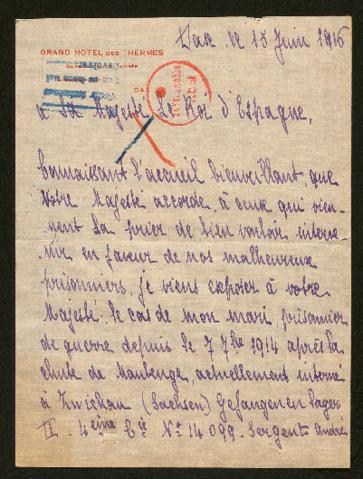 Dax le 13 Juin 1916
GRAND HOTEL DES THERMES
DAX
à Sa Majesté Le Roi d'Espagne,
Connaissant l'accueil bienveillant, que
Votre Majesté accorde, à ceux qui vien-
nent La prier de bien vouloir interve
nir, en faveur de nos malheureux
prisonniers, je viens exposer à votre
Majesté. le cas de mon mari, prisonnier
de guerre depuis le 7 7bre 1914 après la
chute de Maubeuge, actuellement interné
à Zwickau (Sachsen) Gefangenen Lager
II. 4eme Cie No 14099. Sergent André